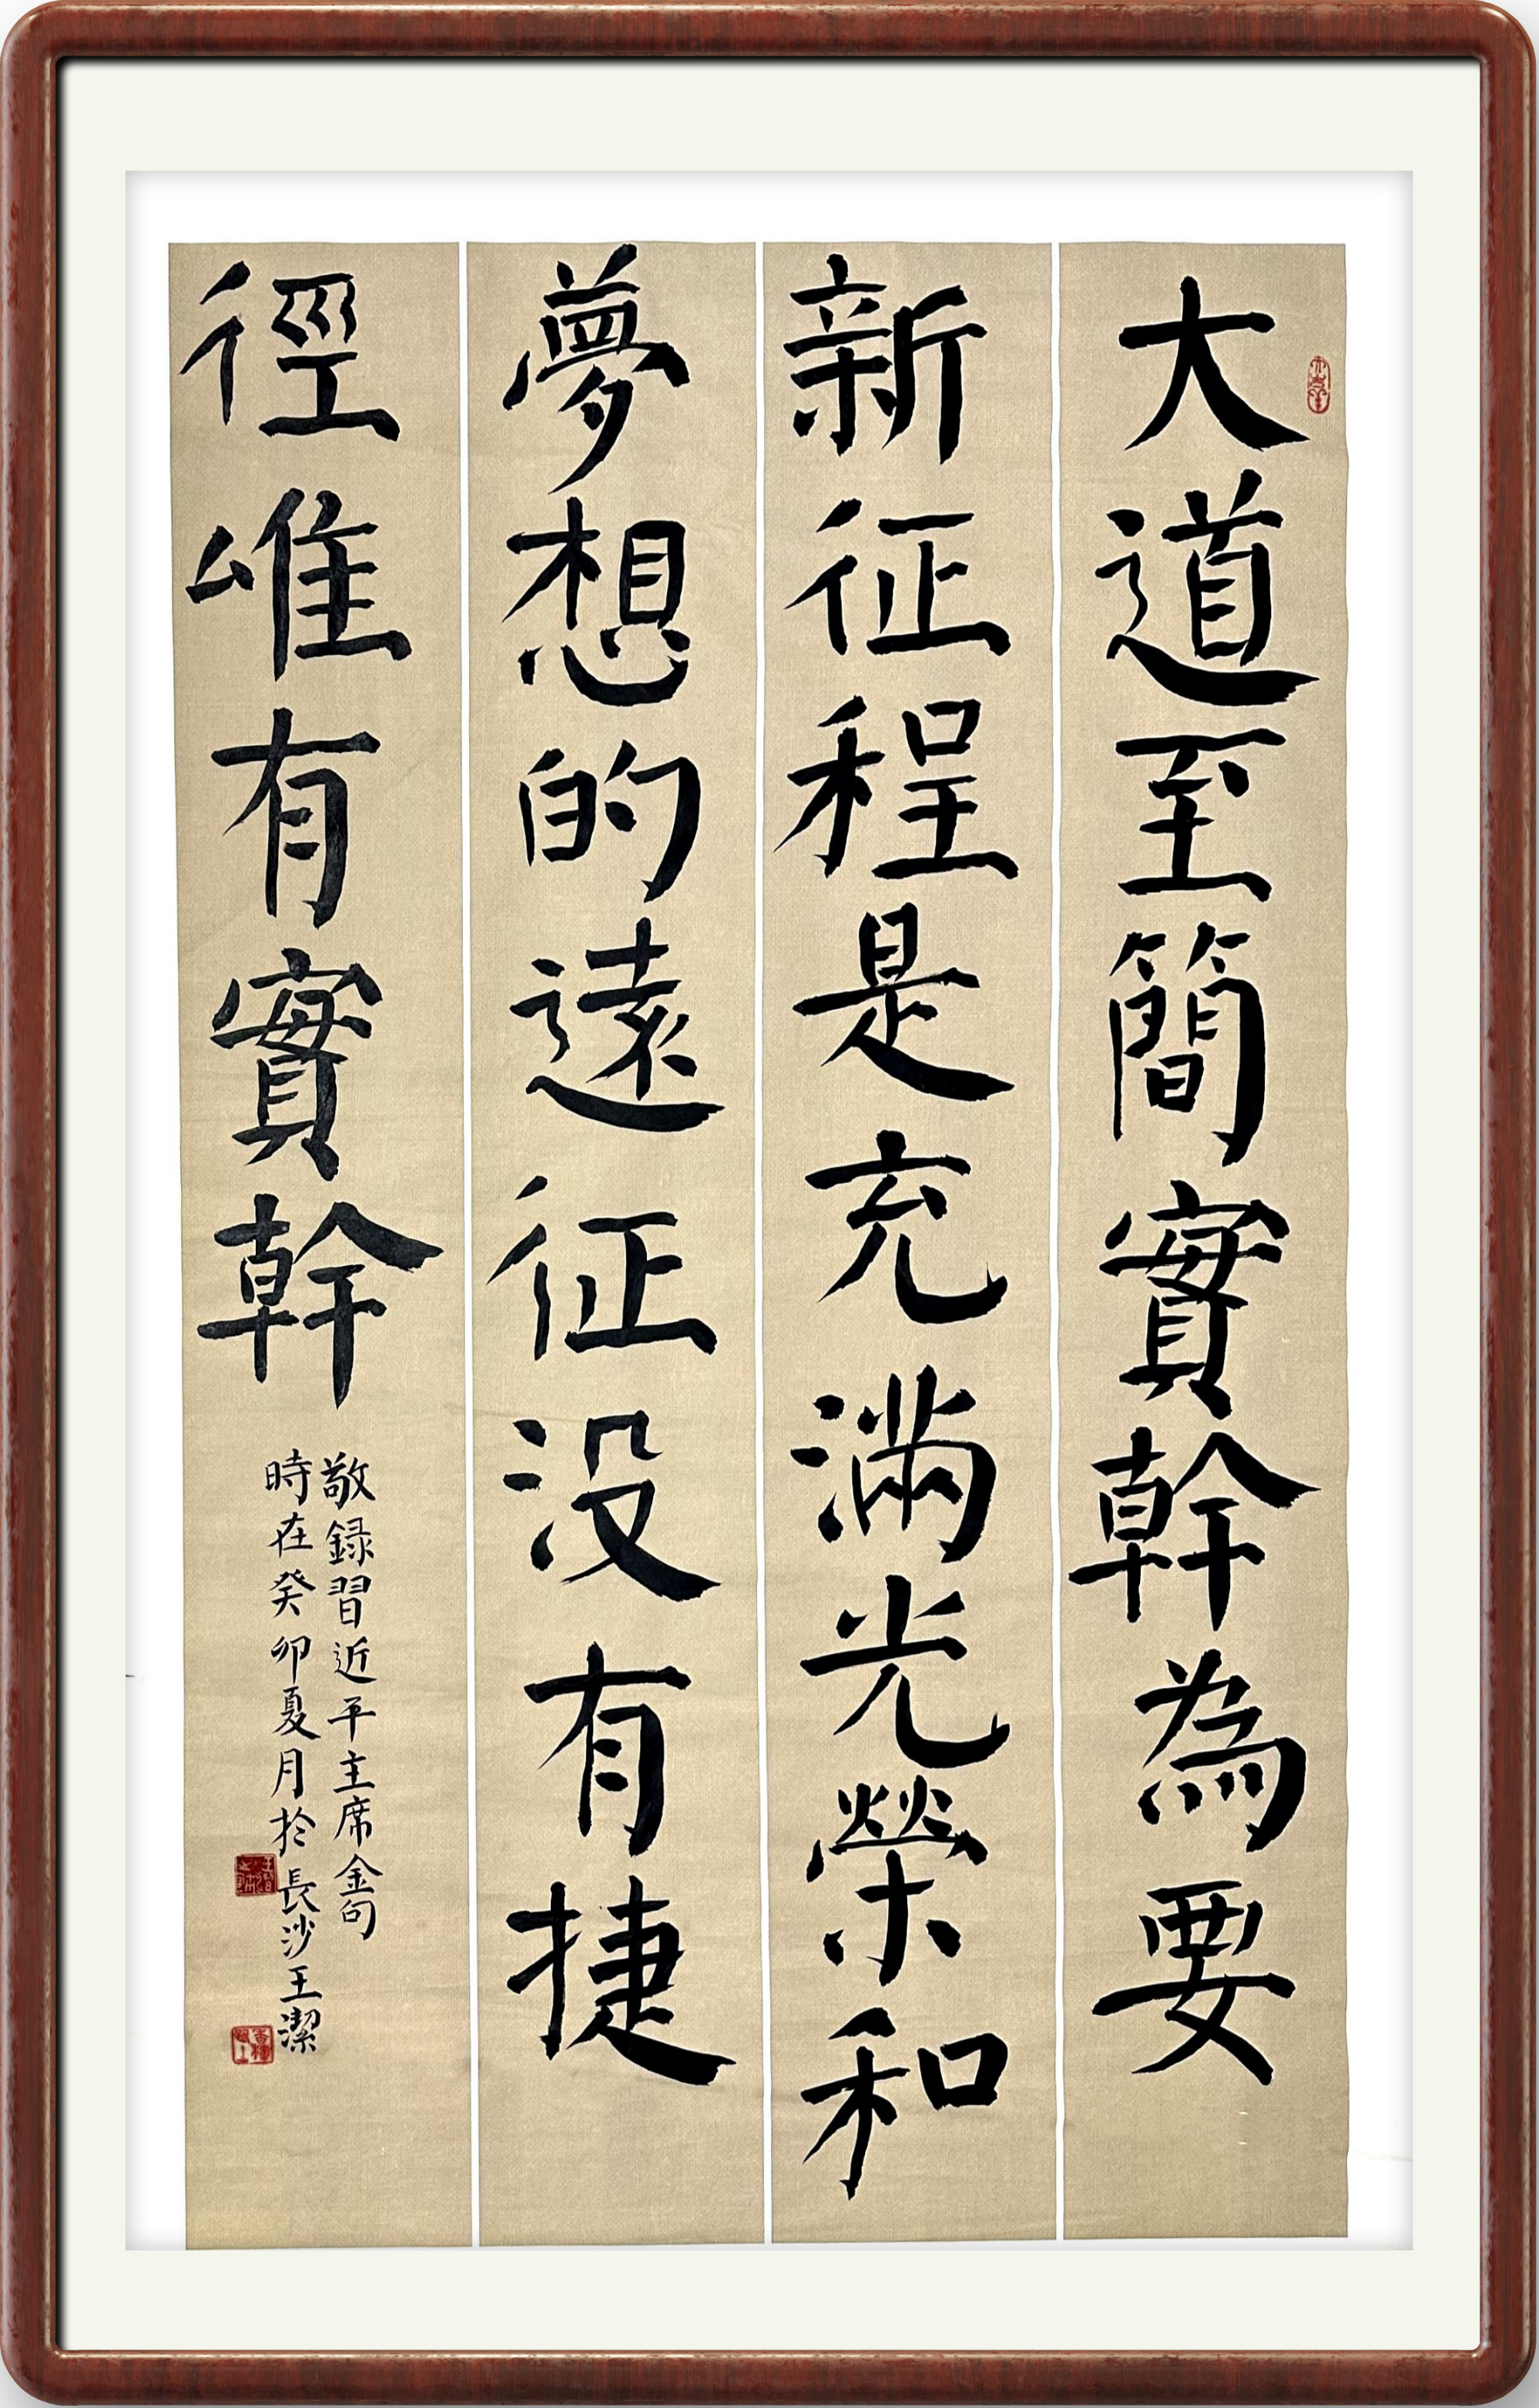 大道至簡實幹為要
新征程是充滿光榮和
夢想的遠征没有捷
徑唯有實幹
敬録習近平主席金句
時在癸卯夏月於長沙王潔